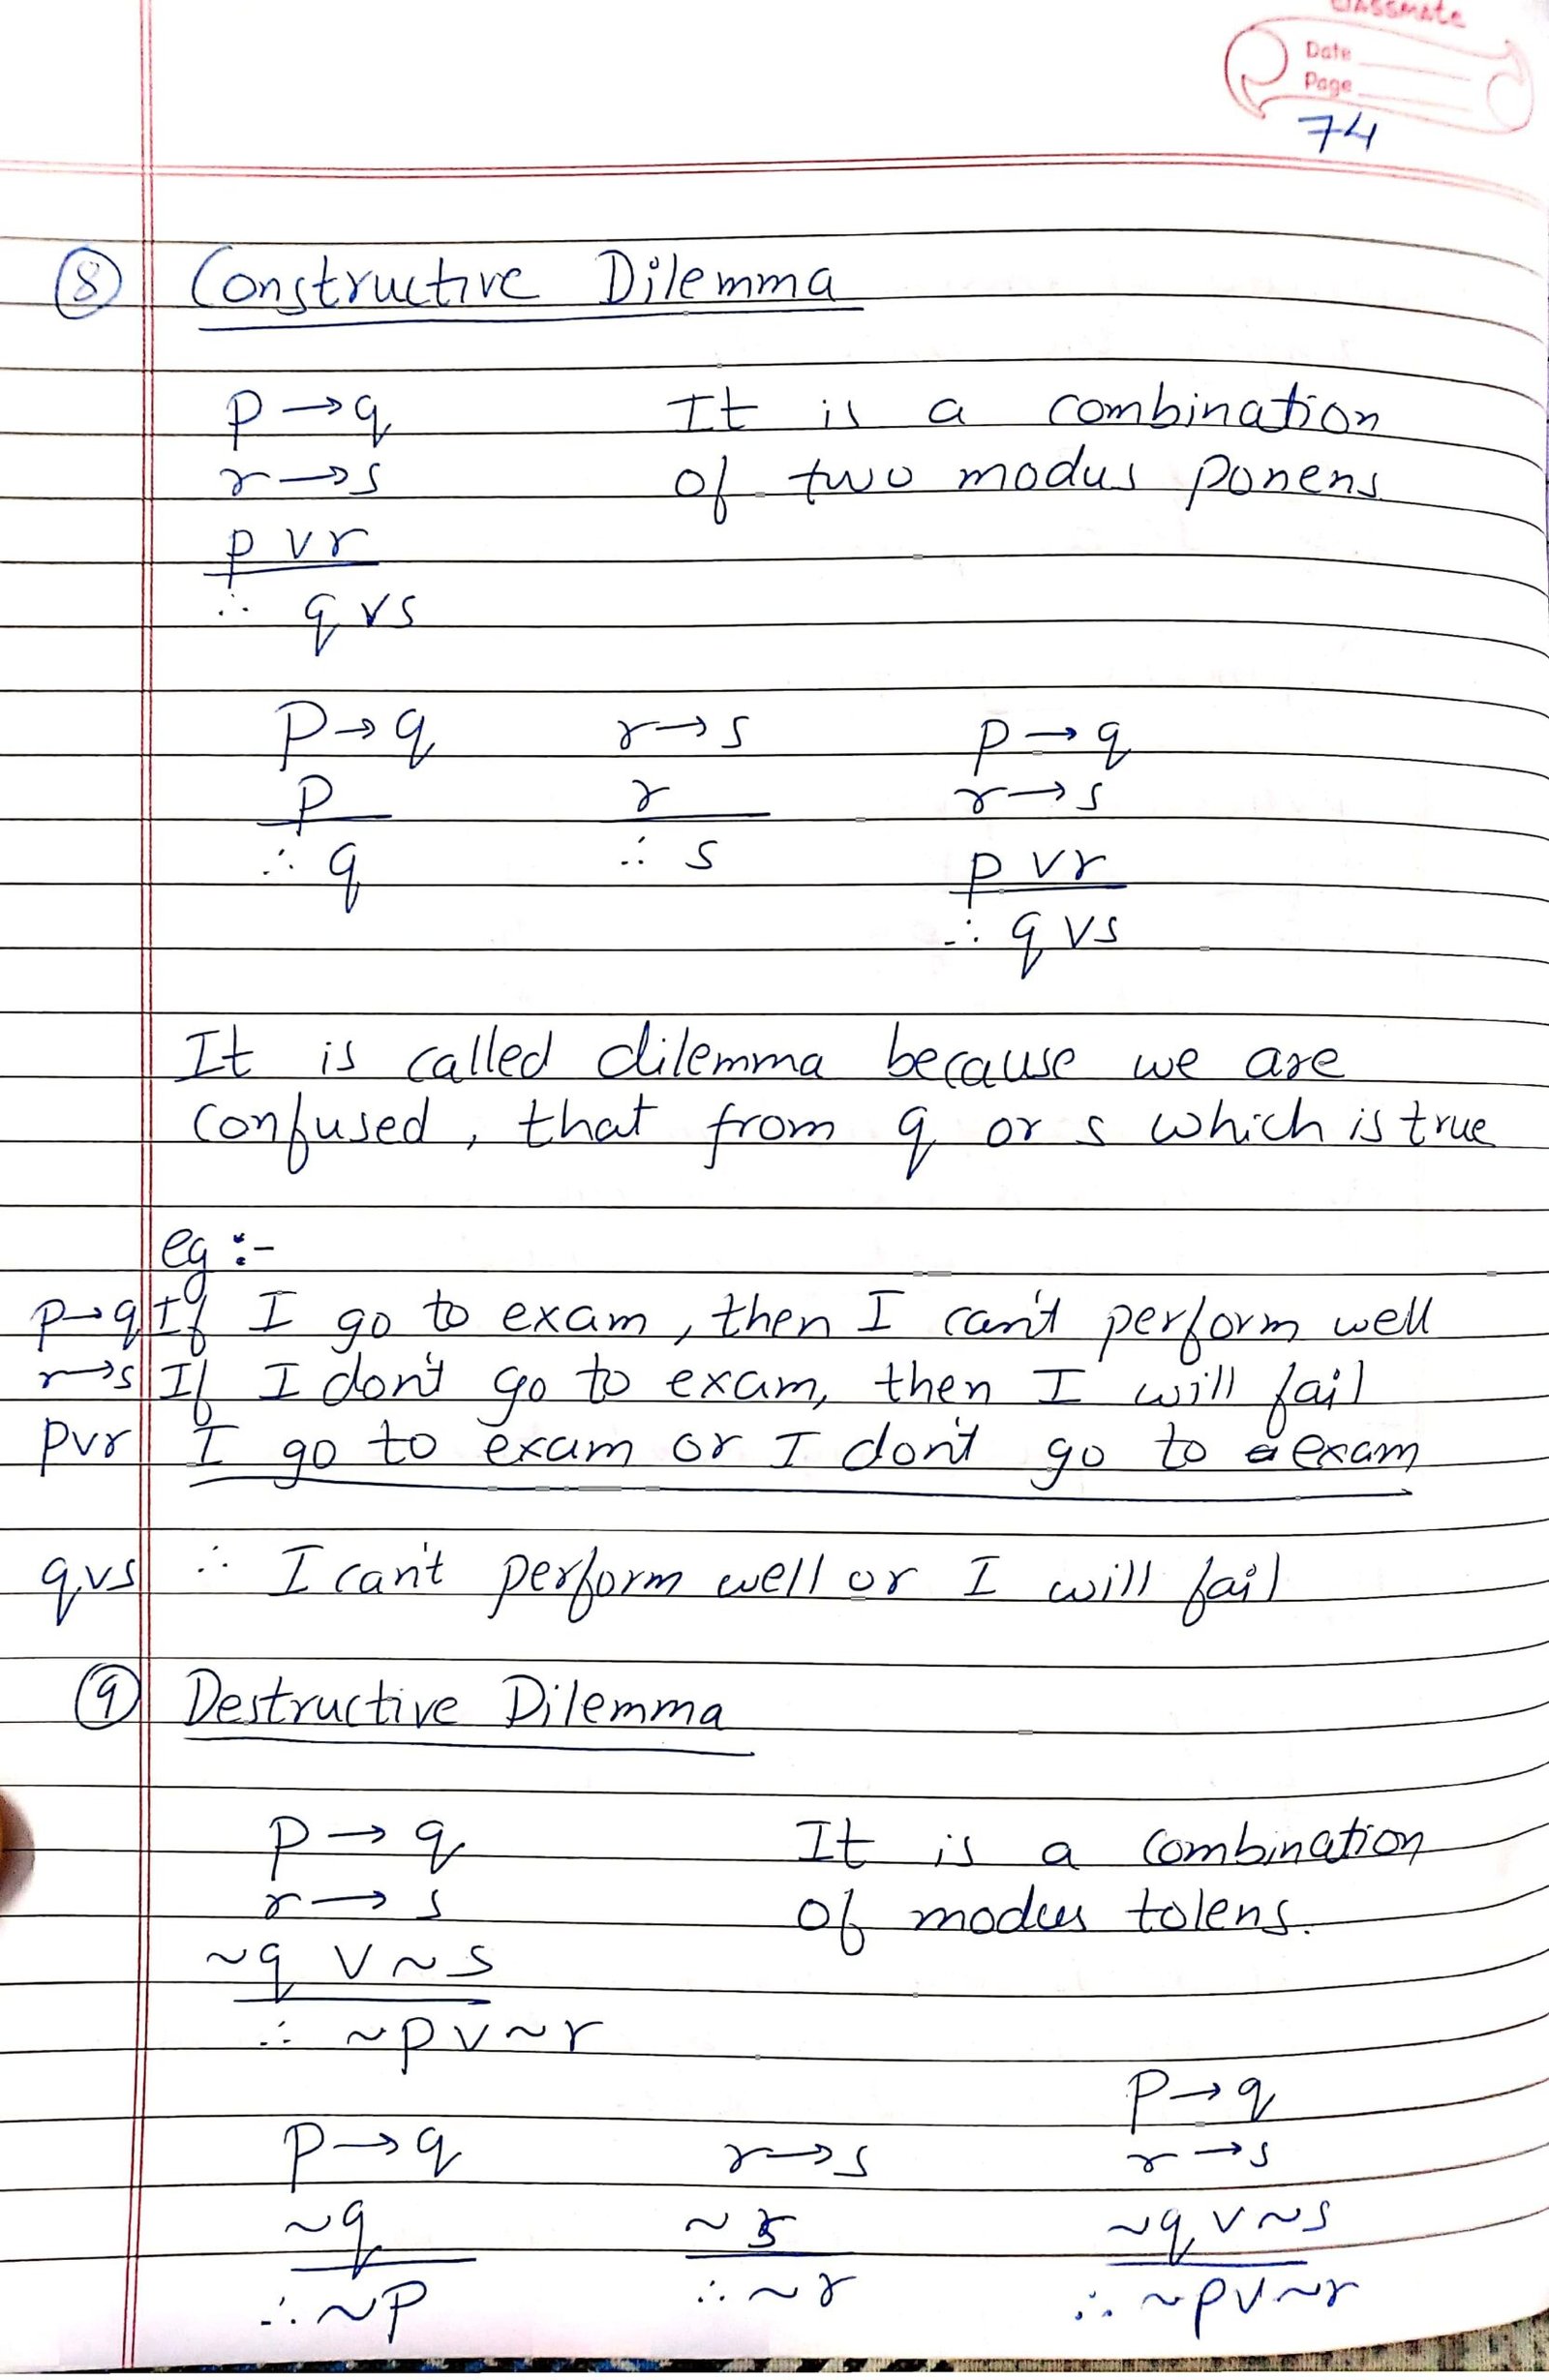 classmate
Date
Page
74
⑧ Constructive Dilemma
p → q It is a combination
r → s of two modus ponens
p v r
∴ q v s
p → q r → s p → q
p r r → s
∴ q ∴ s p v r
∴ q v s
It is called dilemma because we are
confused, that from q or s which is true
eg :-
p → q If I go to exam, then I can't perform well
r → s If I don't go to exam, then I will fail
p v r I go to exam or I don't go to exam
q v s ∴ I can't perform well or I will fail
⑨ Destructive Dilemma
p → q It is a combination
r → s of modus tolens.
~q v ~s
∴ ~p v ~r
p → q
p → q r → s r → s
~q ~s ~q v ~s
∴ ~p ∴ ~r ∴ ~p v ~r